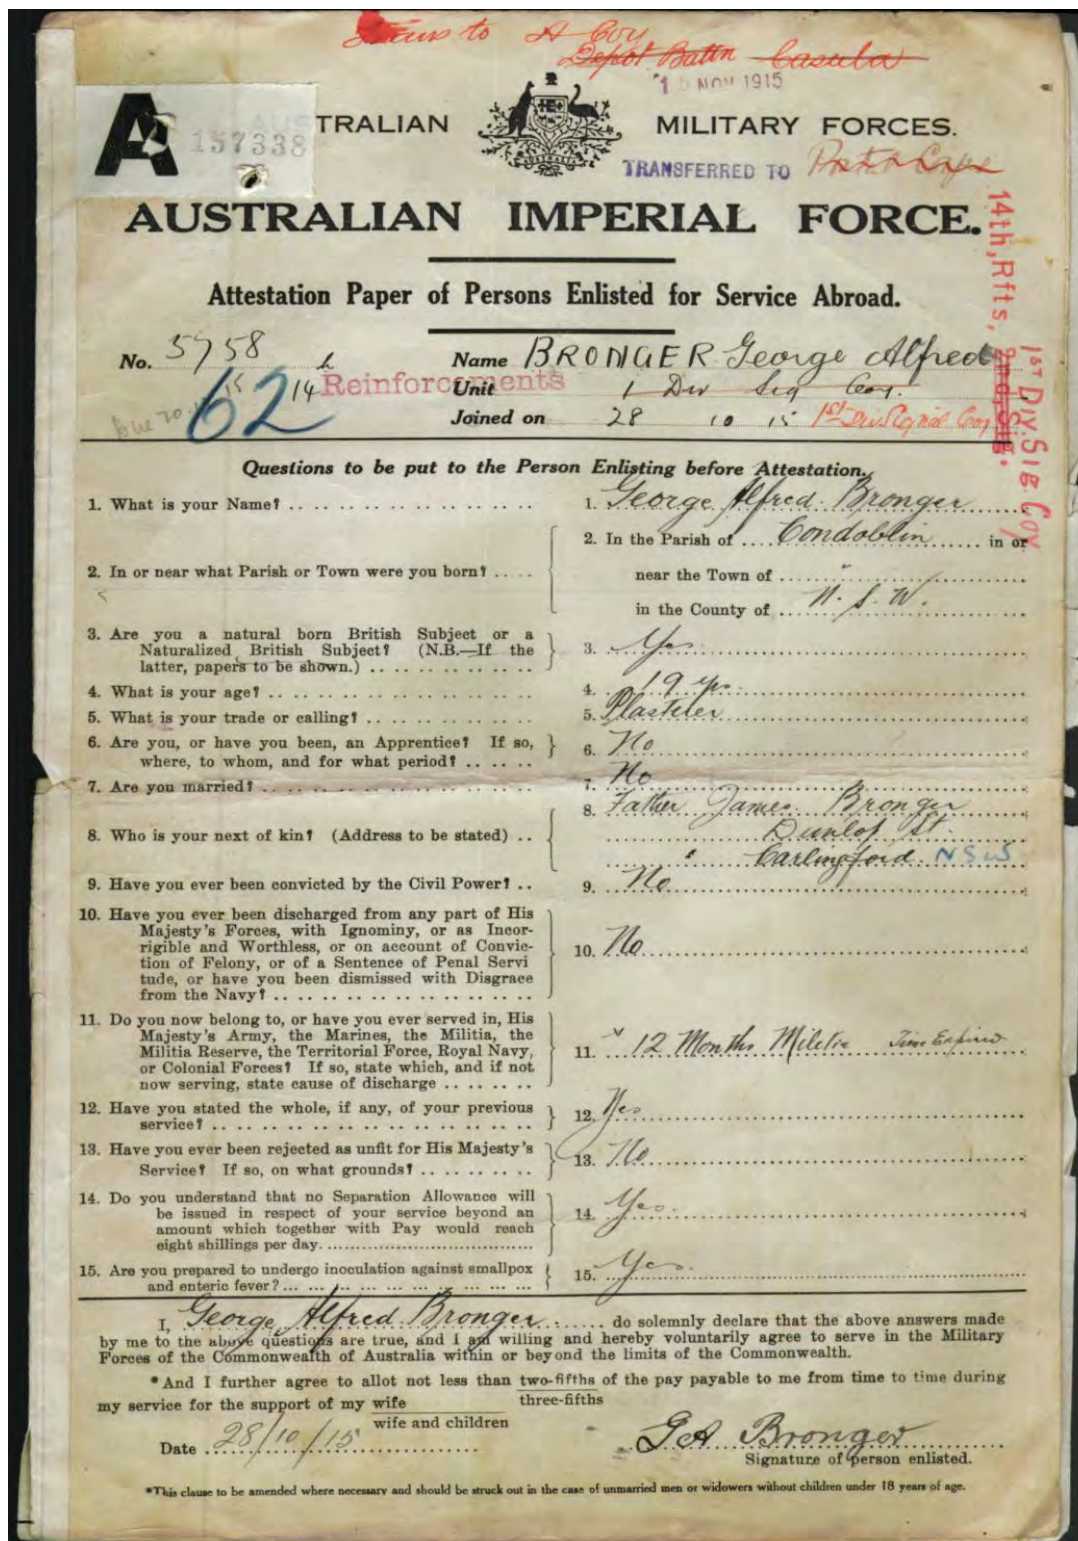 to A Coy
Depot Battn Casula
NOV 1915
A 157338
TRALIAN MILITARY FORCES.
AUSTRALIA
TRANSFERRED TO
AUSTRALIAN IMPERIAL FORCE.
14th, Rfts, 2nd, Sig.
1ST DIV. SIG COY
Attestation Paper of Persons Enlisted for Service Abroad.
No. 5758 Name BRONGER George Alfred
62 14th Reinforcements Unit 1 Div Sig Coy.
Joined on 28 10 15 1st Div Signal Coy
Questions to be put to the Person Enlisting before Attestation.
1. What is your Name? 1. George Alfred Bronger
2. In the Parish of Condoblin in or
2. In or near what Parish or Town were you born? near the Town of "
in the County of N. S. W.
3. Are you a natural born British Subject or a
Naturalized British Subject? (N.B.—If the 3. Yes
latter, papers to be shown.)
4. What is your age? 4. 19 yrs
5. What is your trade or calling? 5. Plasterer
6. Are you, or have you been, an Apprentice? If so, 6. No
where, to whom, and for what period?
7. Are you married? 7. No
8. Father James Bronger
8. Who is your next of kin? (Address to be stated) Dunlop St.
Carlingford NSW
9. Have you ever been convicted by the Civil Power? 9. No
10. Have you ever been discharged from any part of His
Majesty's Forces, with Ignominy, or as Incor-
rigible and Worthless, or on account of Convic- 10. No
tion of Felony, or of a Sentence of Penal Servi
tude, or have you been dismissed with Disgrace
from the Navy?
11. Do you now belong to, or have you ever served in, His
Majesty's Army, the Marines, the Militia, the
Militia Reserve, the Territorial Force, Royal Navy, 11. 12 Months Militia Time Expired
or Colonial Forces? If so, state which, and if not
now serving, state cause of discharge
12. Have you stated the whole, if any, of your previous 12. Yes
service?
13. Have you ever been rejected as unfit for His Majesty's 13. No
Service? If so, on what grounds?
14. Do you understand that no Separation Allowance will
be issued in respect of your service beyond an 14. Yes.
amount which together with Pay would reach
eight shillings per day.
15. Are you prepared to undergo inoculation against smallpox 15. Yes.
and enteric fever?
I, George Alfred Bronger do solemnly declare that the above answers made
by me to the above questions are true, and I am willing and hereby voluntarily agree to serve in the Military
Forces of the Commonwealth of Australia within or beyond the limits of the Commonwealth.
*And I further agree to allot not less than two-fifths of the pay payable to me from time to time during
three-fifths
my service for the support of my wife
wife and children
Date 28/10/15 G A Bronger
Signature of person enlisted.
*This clause to be amended where necessary and should be struck out in the case of unmarried men or widowers without children under 18 years of age.